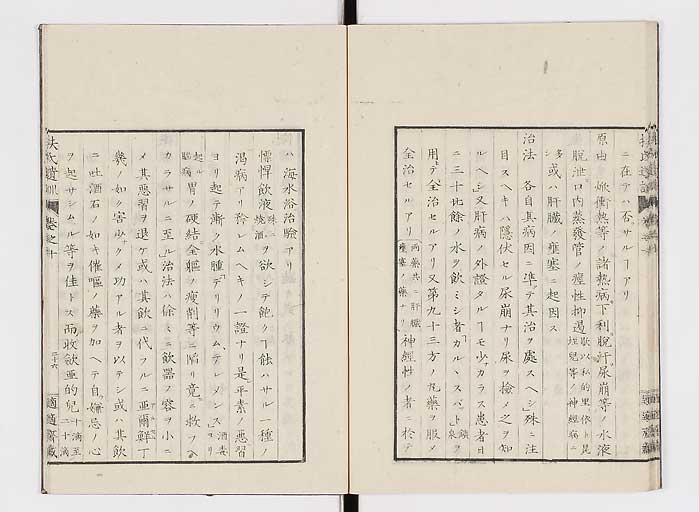 ニ在テハ否ザルヿアリ
原由 焮衝熱等ノ諸熱病下利脫汗尿崩等ノ水液
脫泄口内蒸發管ノ痙性抑遏歇以私的里依卜昆垤兒等ノ神經病ニ
多シ或ハ肝臟ノ壅塞ニ起因ス
治法 各自其病因ニ準テ其治ヲ處スヘシ殊ニ注
目スヘキハ隱伏セル尿崩ナリ尿ヲ撿メ之ヲ知
ルヘシ又肝病ノ外證タルヿモ少カラス患者日
ニ三十比餘ノ水ヲ飲ミシ者カルヽスバット鑛泉ヲ
用テ全治セルアリ又第九十三方ノ丸藥ヲ服メ
全治セルアリ兩藥共ニ肝臟壅塞ノ藥ナリ神經性ノ者ニ於テ
ハ海水浴治驗アリ
慓悍飲液殊ニ燒酒ヲ欲シテ飽クヿ能ハサル一種ノ
渴病アリ矜レムヘキノ一證ナリ是平素ノ惡習
ヨリ起テ漸ク水腫デリリウムテレメンス酒客ヨリ
起ル腦病胃ノ硬結全軀ノ瘦削等ニ陷リ竟ニ救フ可
カラサルニ至ル治法ハ徐ミニ飲器ノ容ヲ小ニ
メ其惡習ヲ退ケ或ハ其飲ニ代フルニ亞爾鮮丁
幾ノ如ク害少クメ功アル者ヲ以テシ或ハ其飲
ニ吐酒石ノ如キ催嘔ノ藥ヲ加ヘテ自嫌忌ノ心
ヲ起サシムル等ヲ佳トス而收歛亜的兒十滴至二十滴
扶氏遺訓 卷之十
三十六
適適齋藏